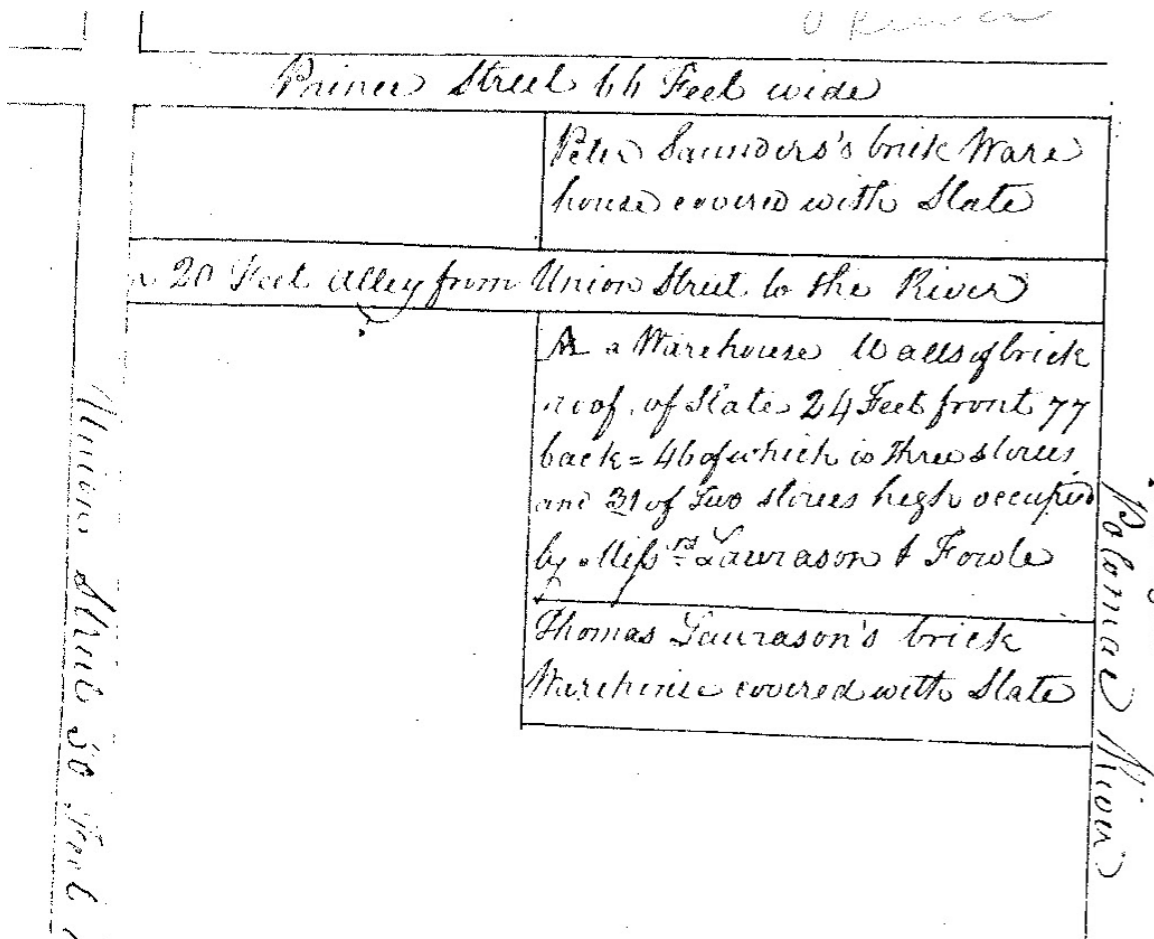 Prince Street 66 Feet wide
Peter Saunders's brick Ware
house covered with Slate
a 20 Feet Alley from Union Street to the River
A a Warehouse Walls of brick
roof of Slate 24 Feet front 77
back = 46 of which is three stories
and 31 of two stories high occupied
by Mess.rs Lawrason & Fowle
Thomas Lawrason's brick
Warehouse covered with Slate
Union Street 50 Feet
Potomac River